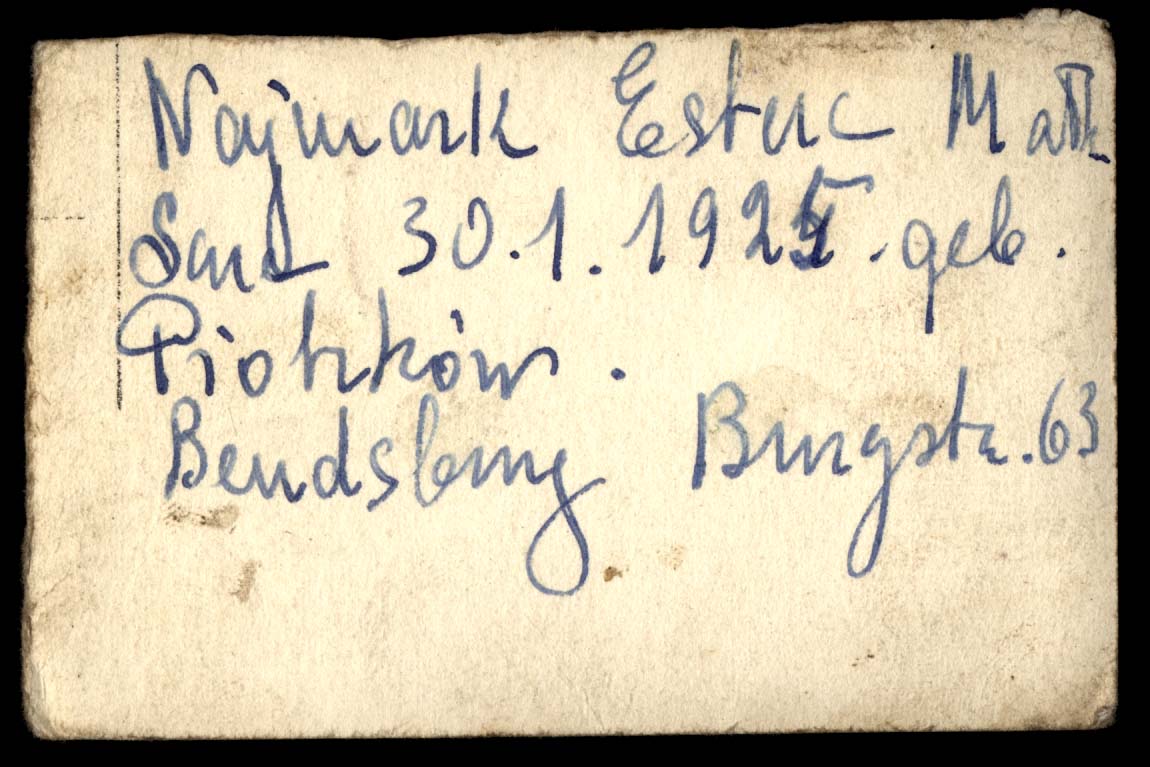 Najmark Ester Matl.
Sara 30.1.1925. geb.
Piotrków.
Bendsburg Burgstr. 63